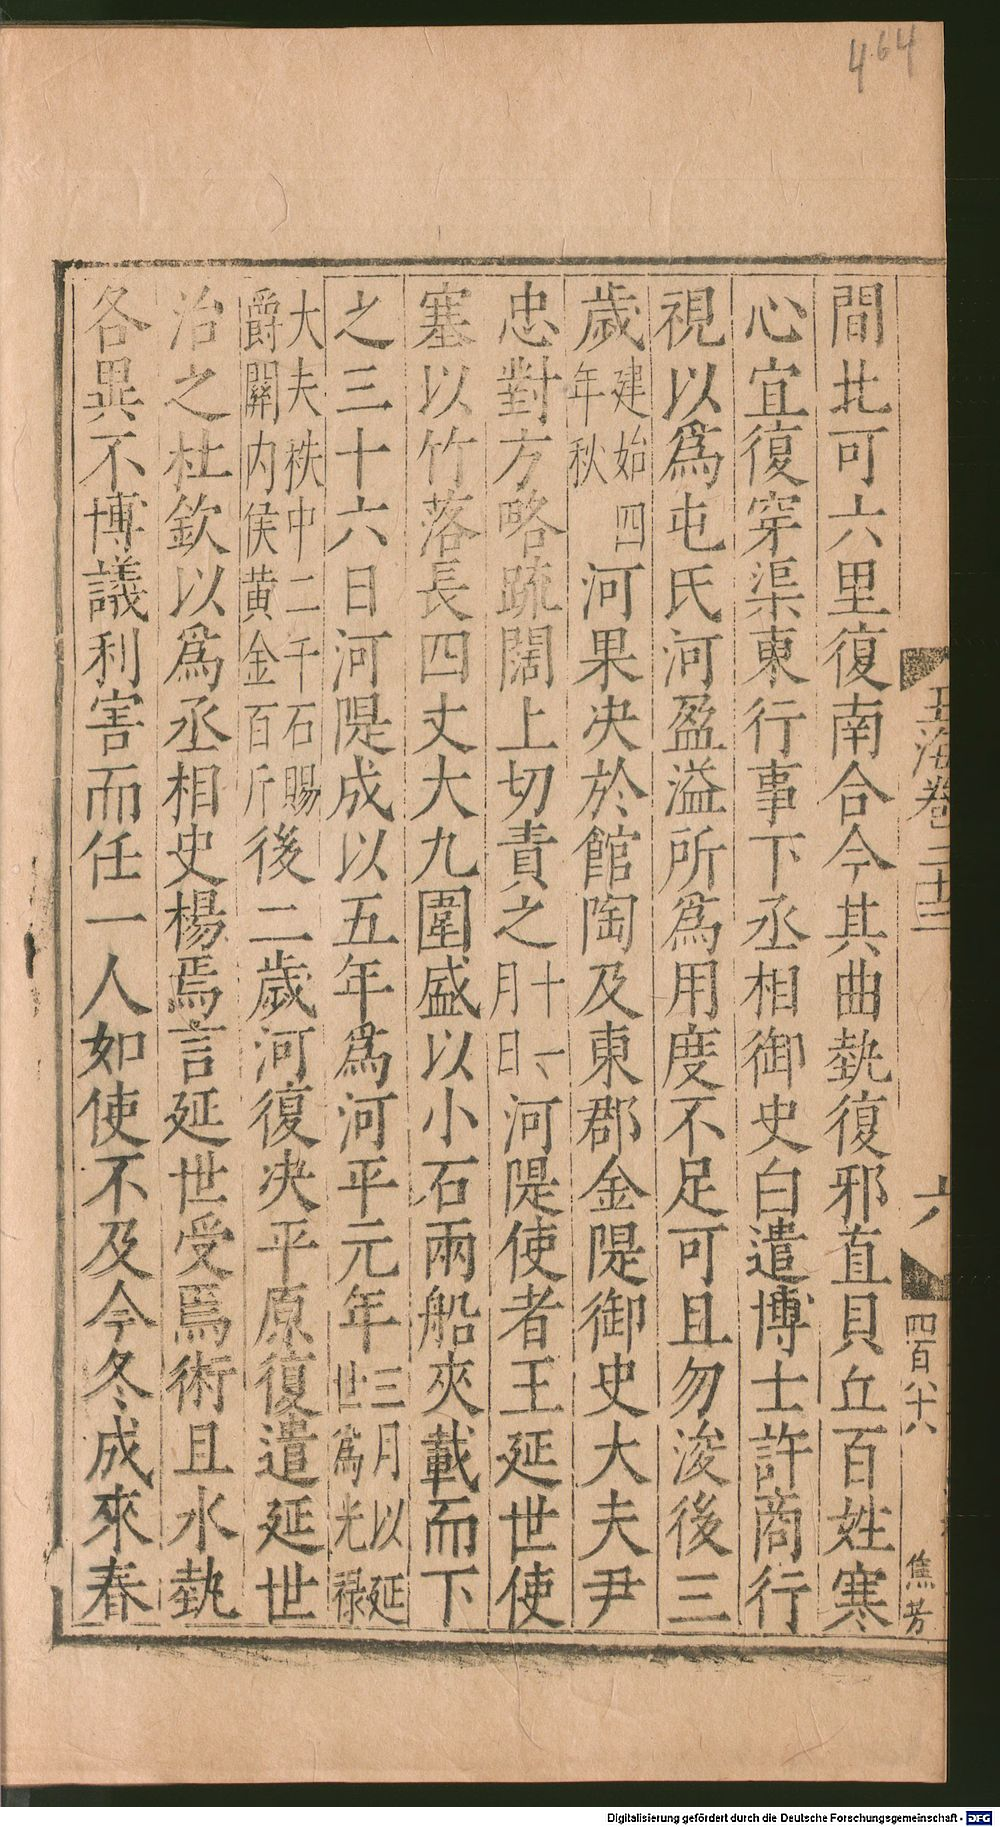 464
玉海卷二十三
六
四百八十八
焦芳
間北可六里復南合今其曲埶復邪直貝丘百姓寒
心宜復穿渠東行事下丞相御史白遣博士許商行
視以爲屯氏河盈溢所爲用度不足可且勿浚後三
歲建始四年秋河果决於館陶及東郡金隄御史大夫尹
忠對方略疏闊上切責之十一月日河隄使者王延世使
塞以竹落長四丈大九圍盛以小石兩船夾載而下
之三十六日河隄成以五年爲河平元年三月以延世爲光禄
大夫秩中二千石賜爵關内侯黄金百斤後二歲河復决平原復遣延世
治之杜欽以爲丞相史楊焉言延世受焉術且水埶
各異不博議利害而任一人如使不及今冬成來春
Digitalisierung gefördert durch die Deutsche Forschungsgemeinschaft - DFG